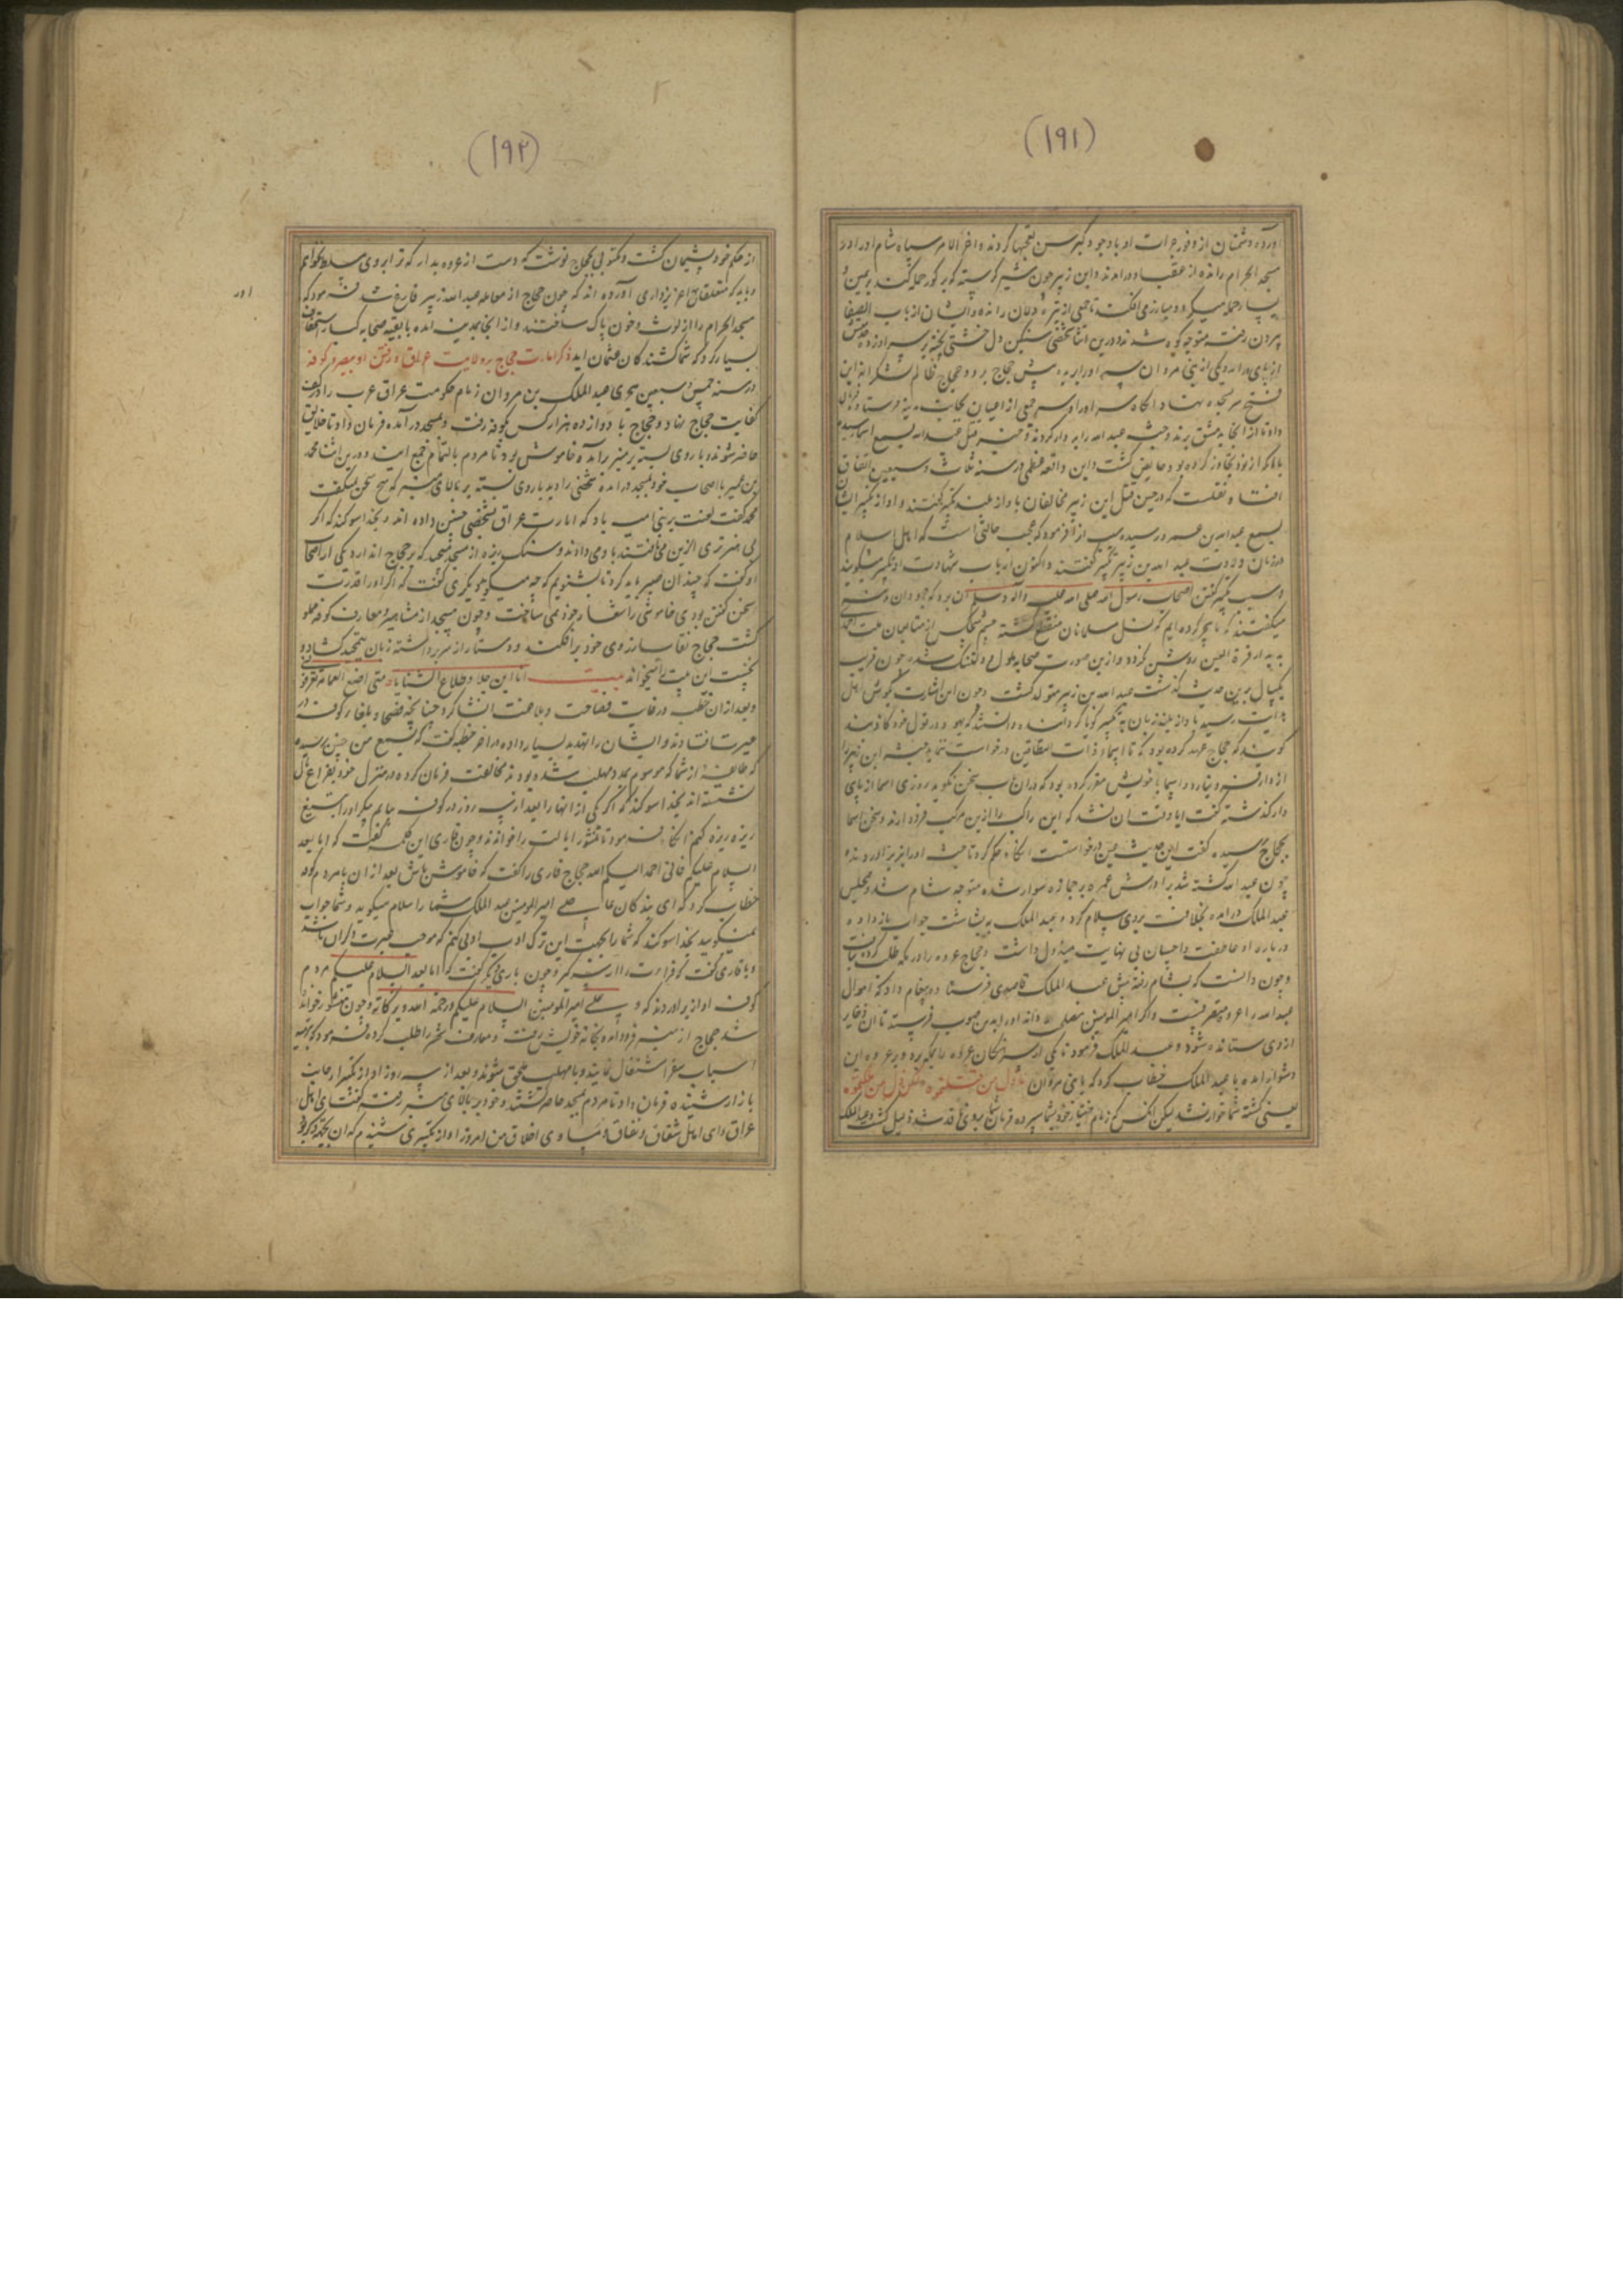 (۱۹۱)
آورده دشمنان از وفور جرات او با وجود کبر سن تعجبها کردند و آخر الامر سپاه شام او را در
مسجد الحرام رانده از عقب او درآمدند و ابن زبیر چون شیر گرسنه که بر گور حمله کند بر یمین و
یسار حمله میکرد و مبارز می افکند تا جمعی از تیره دلان را رانده و ایشان از باب الصفا
بیرون رفته متوجه کوه شدند درین اثنا شخصی سنکین دل خشتی پخته بر سر او زده
از پای درآمد و یکی از بنی مروان سر او را بریده پیش حجاج برد و حجاج ظالم شکرانه این
فتح سر بسجده نهاد آنکاه سر او را و سر جمعی از اعیان بجانب مدینه فرستاد و فرمان
داد تا از آنجا بدمشق برند و جثه عبد الله را بردار کردند و خبر قتل عبد الله بسمع اسما رسیده
با آنکه از نود تجاوز کرده بود حایض کشت و این واقعه عظمی در سنه ثلاث و سبعین اتفاق
افتاد و نقلست که در حین قتل ابن زبیر مخالفان بآواز بلند تکبیر گفتند و آواز تکبیر ایشان
بسمع عبد الله بن عمر رسیده سبب آن فرمود که عجب حالتی است که اهل اسلام
در زمان ولادت عبد الله بن زبیر تکبیر گفتند و اکنون ارباب شهادت او تکبیر میگویند
و سبب تکبیر گفتن اصحاب رسول الله صلی الله علیه و آله و سلم آن بود که یهودان مدینه
میگفتند که ما سحر کرده ایم که نسل مسلمانان منقطع گشته هیچکس از متابعان ملت احمدی
به پدر قرة العین روشن نگردد و ازین صورت صحابه ملول و دلتنک شدند چون قریب
یکسال برین حدیث گذشت عبد الله بن زبیر متولد گشت و چون این بشارت بگوش اهل
هدایت رسید بآواز بلند زبان به تکبیر گویا گردانیدند و دانستند که یهود در قول خود کاذبند
گویند که حجاج عهد کرده بود که تا اسما ذات النطاقین درخواست ننماید جثه ابن زبیر را
از دار فرو نیارد و اسما با خویش مقرر کرده بود که در آن باب سخن نگوید روزی اسما از پای
دار گذشته گفت ایا وقت آن نشد که این راکب را ازین مرکب فرود آرند و سخن اسما
بحجاج رسیده گفت این حدیث عین درخواستست آنکاه حکم کرد تا جثه او را بزیر آوردند و
چون عبد الله کشته شد برادرش عروه بر جمازه سوار شده متوجه شام شد و بمجلس
عبد الملک درآمده بخلافت بر وی سلام کرد و عبد الملک به بشاشت جواب باز داده
در باره او عاطفت و احسان بی نهایت مبذول داشت و حجاج عروه را در مکه طلب کرده نیافت
و چون دانست که بشام رفته پیش عبد الملک قاصدی فرستاده پیغام داد که اموال
عبد الله را عروه متصرفست و اگر امیر المومنین مصلحت داند او را بدین صوب فرستد تا آن ذخایر
از وی ستانده شود و عبد الملک فرمود تا یکی از سرهنکان عروه را بمکه برد و بر عروه این
دشوار آمده با عبد الملک خطاب کرد که یا بنی مروان ما ذل من قتلتموه ولکن ذل من ملکتموه
یعنی کشته شما خوار نشد لیکن آنکس که زمام اختیار خود بشما سپرده فرمان شما بر وی نافذ شد ذلیل گشت و عبد الملک
(۱۹۲)
از حکم خود پشیمان گشت و مکتوبی بحجاج نوشت که دست از عروه بدار که ترا بر وی مسلط نخواهم
آورده اند که چون حجاج از معامله عبد الله زبیر فارغ شد فرمود که
مسجد الحرام را از لوث و خون پاک ساختند و از آنجا بمدینه آمده با بقیه صحابه کبار استخفاف
بسیار کرد که شما کشندکان عثمان اید ذکر امارت حجاج بر ولایت عراق و رفتن او ببصره و کوفه
در سنه خمس و سبعین هجری عبد الملک بن مروان زمام حکومت عراق عرب را در کف
کفایت حجاج نهاد و حجاج با دوازده هزار کس بکوفه رفت و بمسجد درآمده فرمان داد تا خلایق
حاضر شوند و با روی بسته بر منبر برآمده خاموش بود تا مردم بالتمام جمع آمدند و درین اثنا محمد
بن عمیر با اصحاب خود بمسجد درآمده شخصی را دید با روی بسته بر بالای منبر که هیچ سخن نمیگفت
محمد گفت لعنت بر بنی امیه باد که امارت عراق بشخصی چنین داده اند و بخدا سوکند که اگر
بی هنر تری ازین می یافتند باو می دادند و سنک ریزه از مسجد برکرفت که بر حجاج اندازد یکی از اصحاب
او گفت که چندان صبر باید کرد تا بشنویم که چه میگوید و دیگری گفت که اگر او را قدرت
سخن گفتن بودی خاموشی را شعار خود نمی ساخت و چون مسجد از مشاهیر و معارف کوفه مملو
گشت حجاج نقاب از روی خود برافکند و دستار از سر برداشته زبان بتحمید گشاده و
نخست این بیت را بخواند بیت انا ابن جلا و طلاع الثنایا متی اضع العمامة تعرفونی
و بعد از آن خطبه در غایت فصاحت و بلاغت انشا کرد چنانچه فصحا و بلغاء کوفه در
حیرت افتادند و ایشان را تهدید بسیار داده در آخر خطبه گفت که بسمع من چنین رسیده
که طایفه از شما که موسوم بمدد مهلب شده بودند مخالفت فرمان کرده در منزل خود بفراغ بال
نشسته اند بخدا سوکند که اگر یکی از آنها را بعد از سه روز در کوفه بیابم پیکر او را بتیغ
ریزه ریزه کنم آنکاه فرمود تا منشور ایالت را خواندند و چون قاری این کلمه گفت که اما بعد
السلام علیکم فانی احمد الیکم الله حجاج قاری را گفت که خاموش باش بعد از آن با مردم کوفه
خطاب کرد که ای بندکان عاصی امیر المومنین عبد الملک شما را سلام میگوید و شما جواب
نمیگویید بخدا سوکند که شما را بجهت این ترک ادب ادبی کنم که موجب عبرت دیگران باشد
و با قاری گفت که قراءت را از سر گیر و چون باری دیگر گفت که اما بعد السلام علیکم مردم
کوفه آواز برآوردند که و علی امیر المومنین السلام علیکم و رحمة الله و برکاته و چون منشور خوانده
شد حجاج از منبر فرود آمده بخانه خویش رفت و معارف شهر را طلب کرده فرمود که بتهیه
اسباب سفر اشتغال نمایند و با مهلب ملحق شوند و بعد از سه روز آواز تکبیر از جانب
بازار شنیده فرمان داد تا مردم بمسجد حاضر گشتند و خود بر بالای منبر رفته گفت ای اهل
عراق و ای اهل شقاق و نفاق و مساوی اخلاق من امروز آواز تکبیری شنیدم که آن
اور